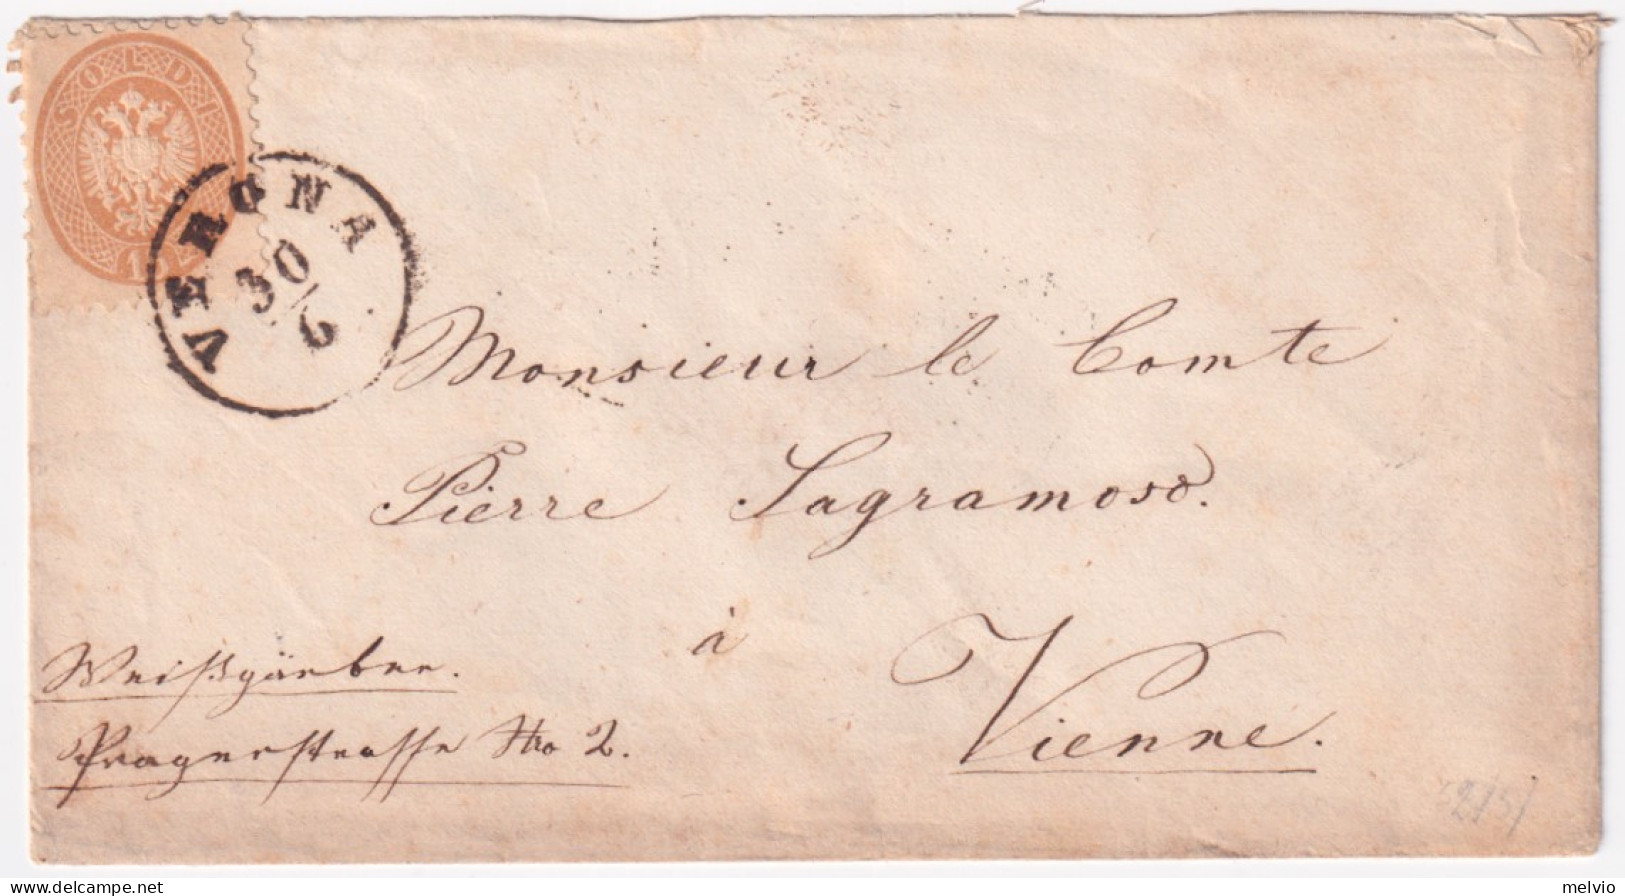 SOLDI
15
VERONA
30/6
Monsieur le Comte
Pierre Sagramoso.
à
Vienne.
Weißgärber.
Pragerstrasse Nro 2.
delcampe.net
melvio